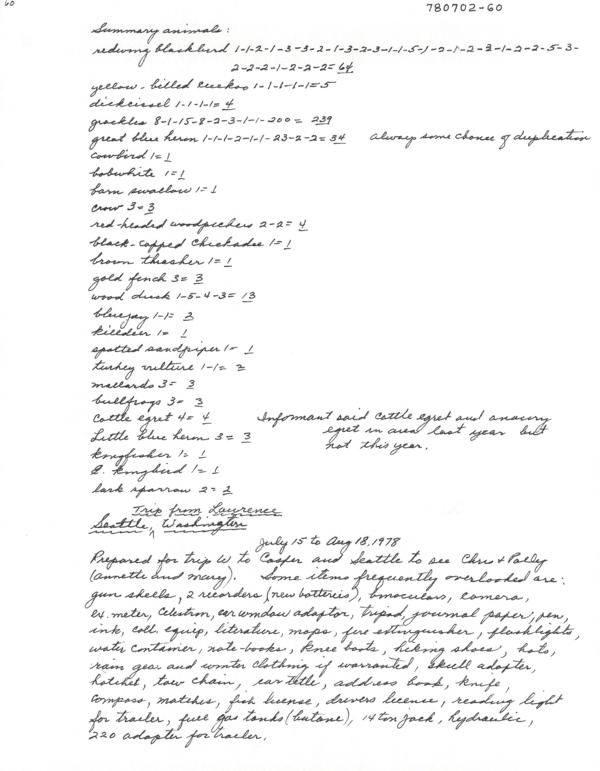 60
780702-60
Summary animals:
redwing blackbird 1-1-2-1-3-3-2-1-3-2-3-1-1-5-1-2-1-2-3-1-2-2-5-3-
2-2-2-1-2-2-2=64
yellow-billed cuckoo 1-1-1-1-1=5
dickcissel 1-1-1-1=4
grackles 8-1-15-8-2-3-1-1-200=239
great blue heron 1-1-1-2-1-1-23-2-2=34 always some chance of duplication
cowbird 1=1
bobwhite 1=1
barn swallow 1=1
crow 3=3
red-headed woodpeckers 2-2=4
black-capped chickadee 1=1
brown thrasher 1=1
gold finch 3=3
wood duck 1-5-4-3=13
bluejay 1-1=2
killdeer 1=1
spotted sandpiper 1=1
turkey vulture 1-1=2
mallards 3=3
bullfrogs 3=3
Cattle egret 4=4 Informant said cattle egret and snowy
egret in area last year but
Little blue heron 3=3
not this year.
kingfisher 1=1
E. kingbird 1=1
lark sparrow 2=2
Trip from Lawrence
Seattle, Washington
July 15 to Aug 18, 1978
Prepared for trip W to Casper and Seattle to see Chris + Polly
(Annette and Mary). Some items frequently overlooked are:
gun shells, 2 recorders (new batteries), binoculars, camera,
ex. meter, Celestron, car window adaptor, tripod, journal paper, pen,
ink, coll. equip, literature, maps, fire extinguisher, flashlights,
water container, note-books, knee boots, hiking shoes, hats,
rain gear and winter clothing if warranted, skull adapter,
hatchet, tow chain, car title, address book, knife,
compass, matches, fish license, drivers license, reading light
for trailer, fuel gas tanks (butane), 14 ton jack, hydraulic,
220 adapter for trailer.